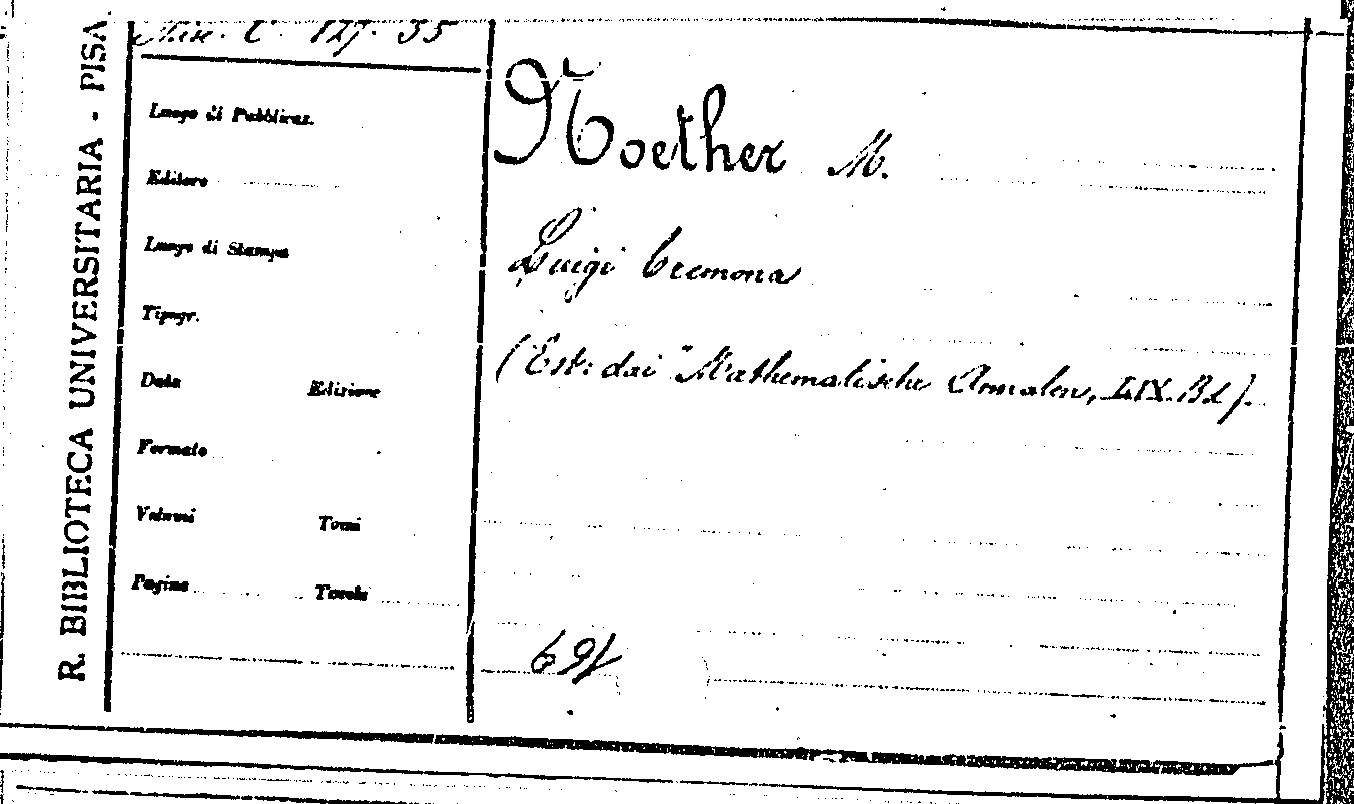 R. BIBLIOTECA UNIVERSITARIA - PISA
Misc. C. 127. 35
Luogo di Pubblicaz.
Editore
Luogo di Stampa
Tipogr.
Data Edizione
Formato
Volumi Tomi
Pagine Tavole
Noether M.
Luigi Cremona
(Est: dai "Mathematische Annalen, LIX. Bd).